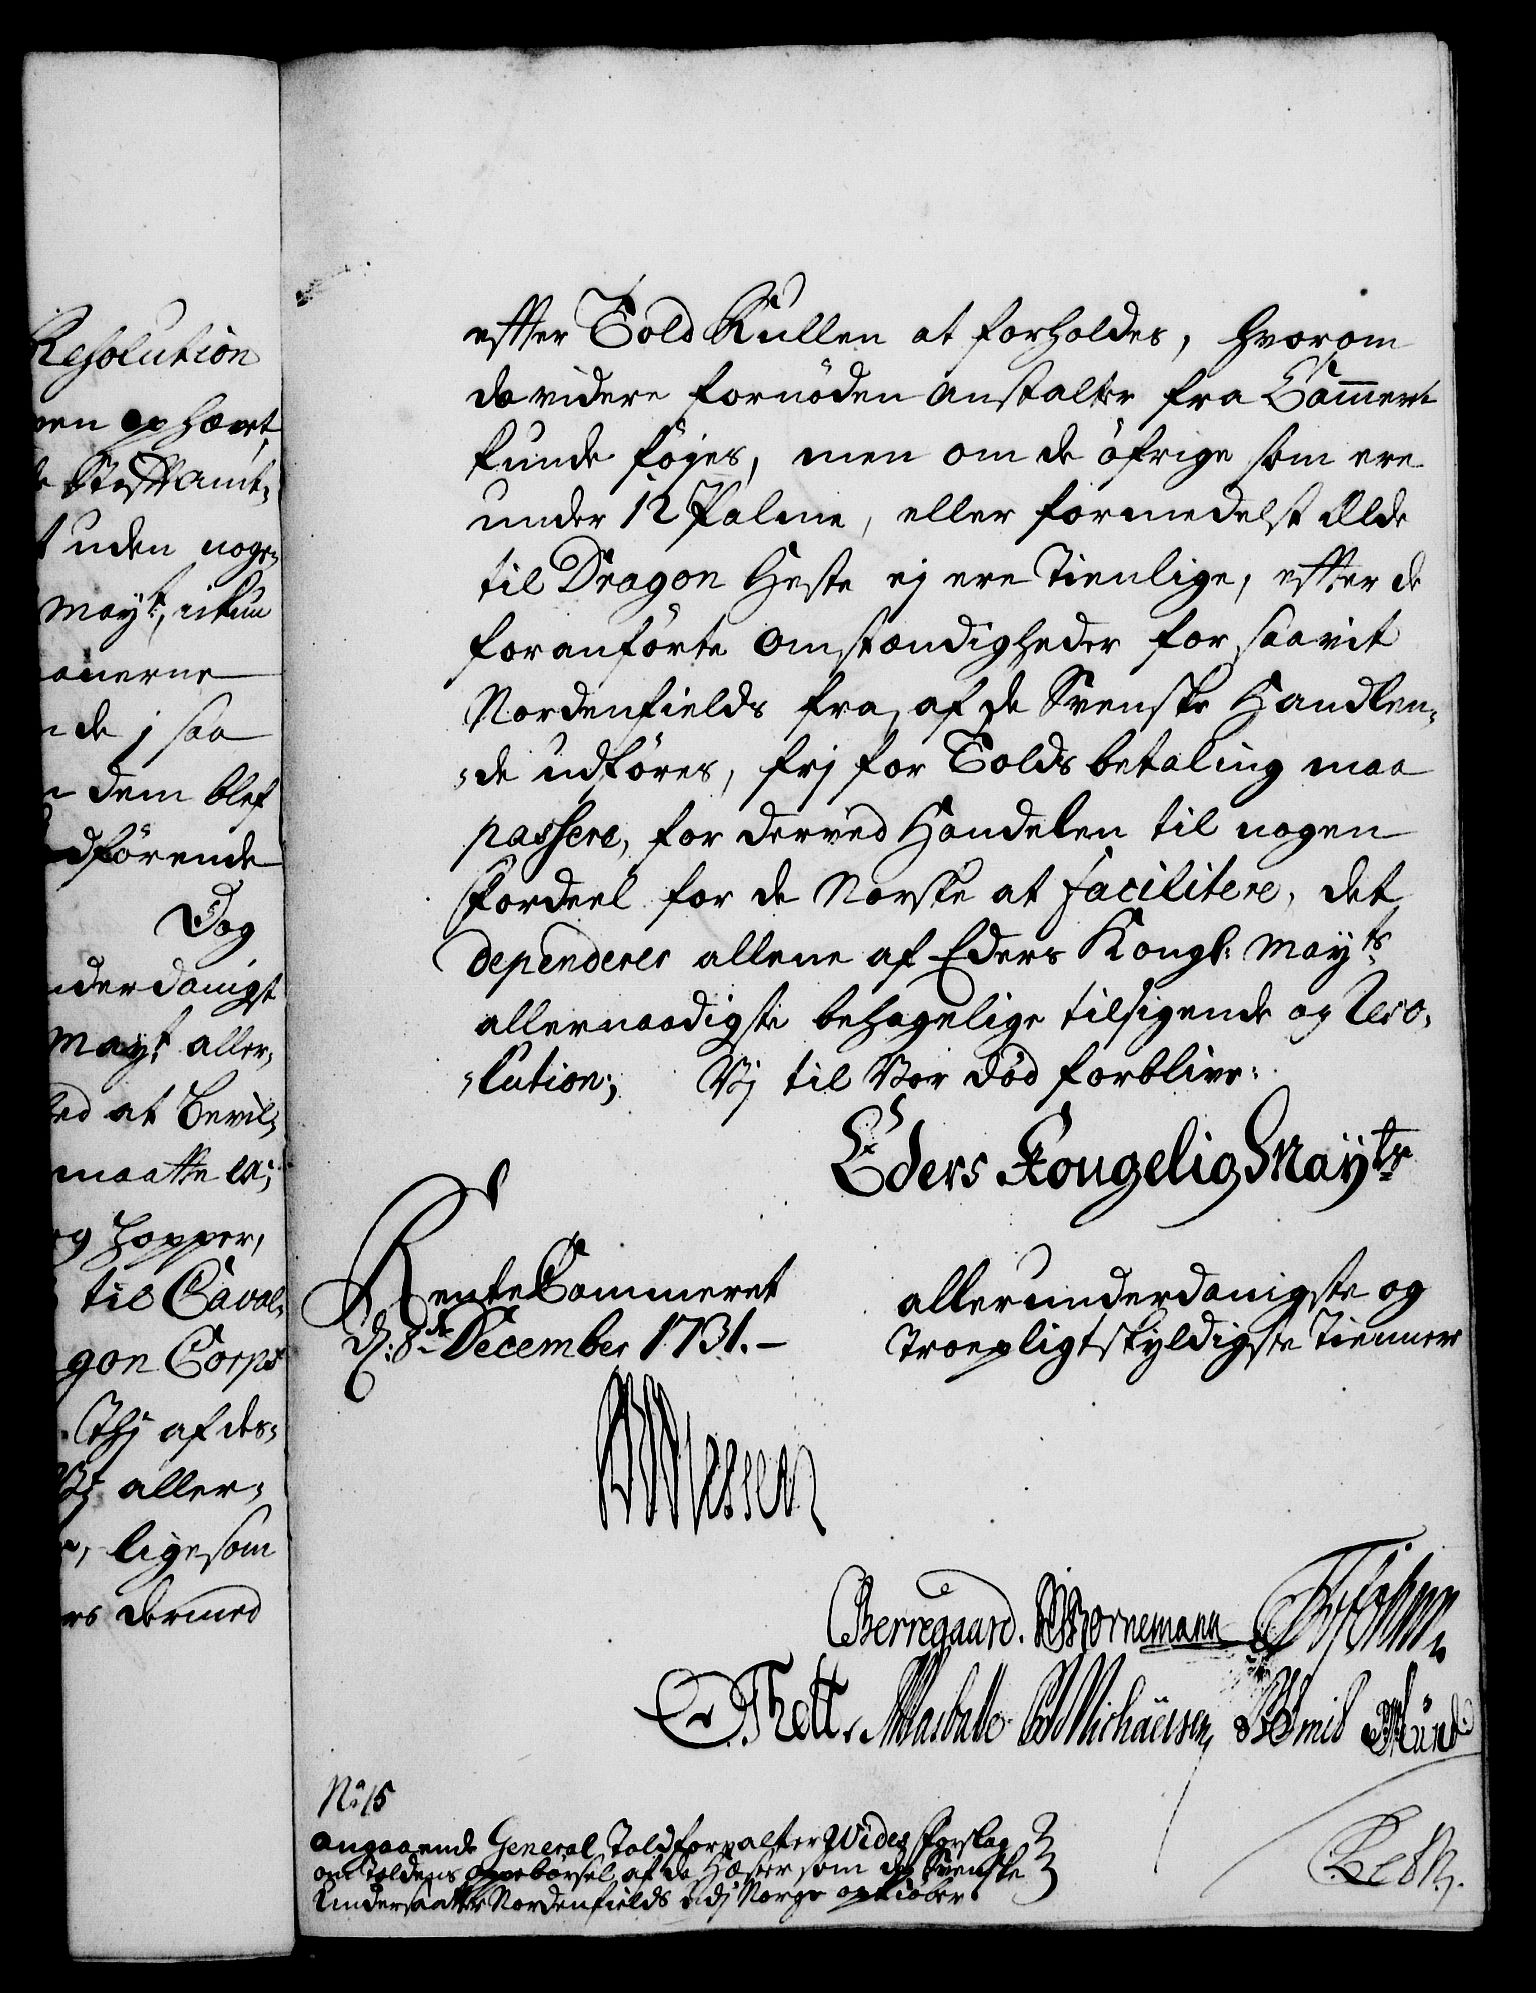 Resolution
ven ophævet,
Stiftamt-
t uden nogen
Mayt, ickun
anerne
nde j saa
dem blef
udförende
Dog
nderdanigst
Mayt aller-
ed at bevil-
maatte la-
og Hopper,
til Caval-
gon Corps
Thj af des-
Vj aller-
ligesom
rs dermed
efter Told Rullen at forholdes, hvorom
da videre fornöden anstalter fra Cammeret
kunde föjes, men om de öfrige som ere
under 12 Palme, eller formedelst Ælde
til Dragon Heste ej ere tienlige, efter de
foranförte omstændigheder for saavit
Nordenfields fra, af de Svenske Handlen-
-de udföres, frj for Tolds betaling maa
passere, for derved Handelen til nogen
Fordeel for de Norske at facilitere, det
dependerer allene af Eders Kongl: Mayts
allernaadigste behagelige tilsigende og Reso-
-lution; Vj til Vor Död forblive:
Eders Kongelig Mayts
RenteCammeret
d: 8de December 1731.-
allerunderdanigste og
Troepligtskyldigste Tienner
Berregaard. Bornemann
Thott.
No 15
angaaende General Toldforvalter Wides forslag
om Toldens oppebörsel af de Hæster som de Svenske
Undersaatter Nordenfields udj Norge opkiöber